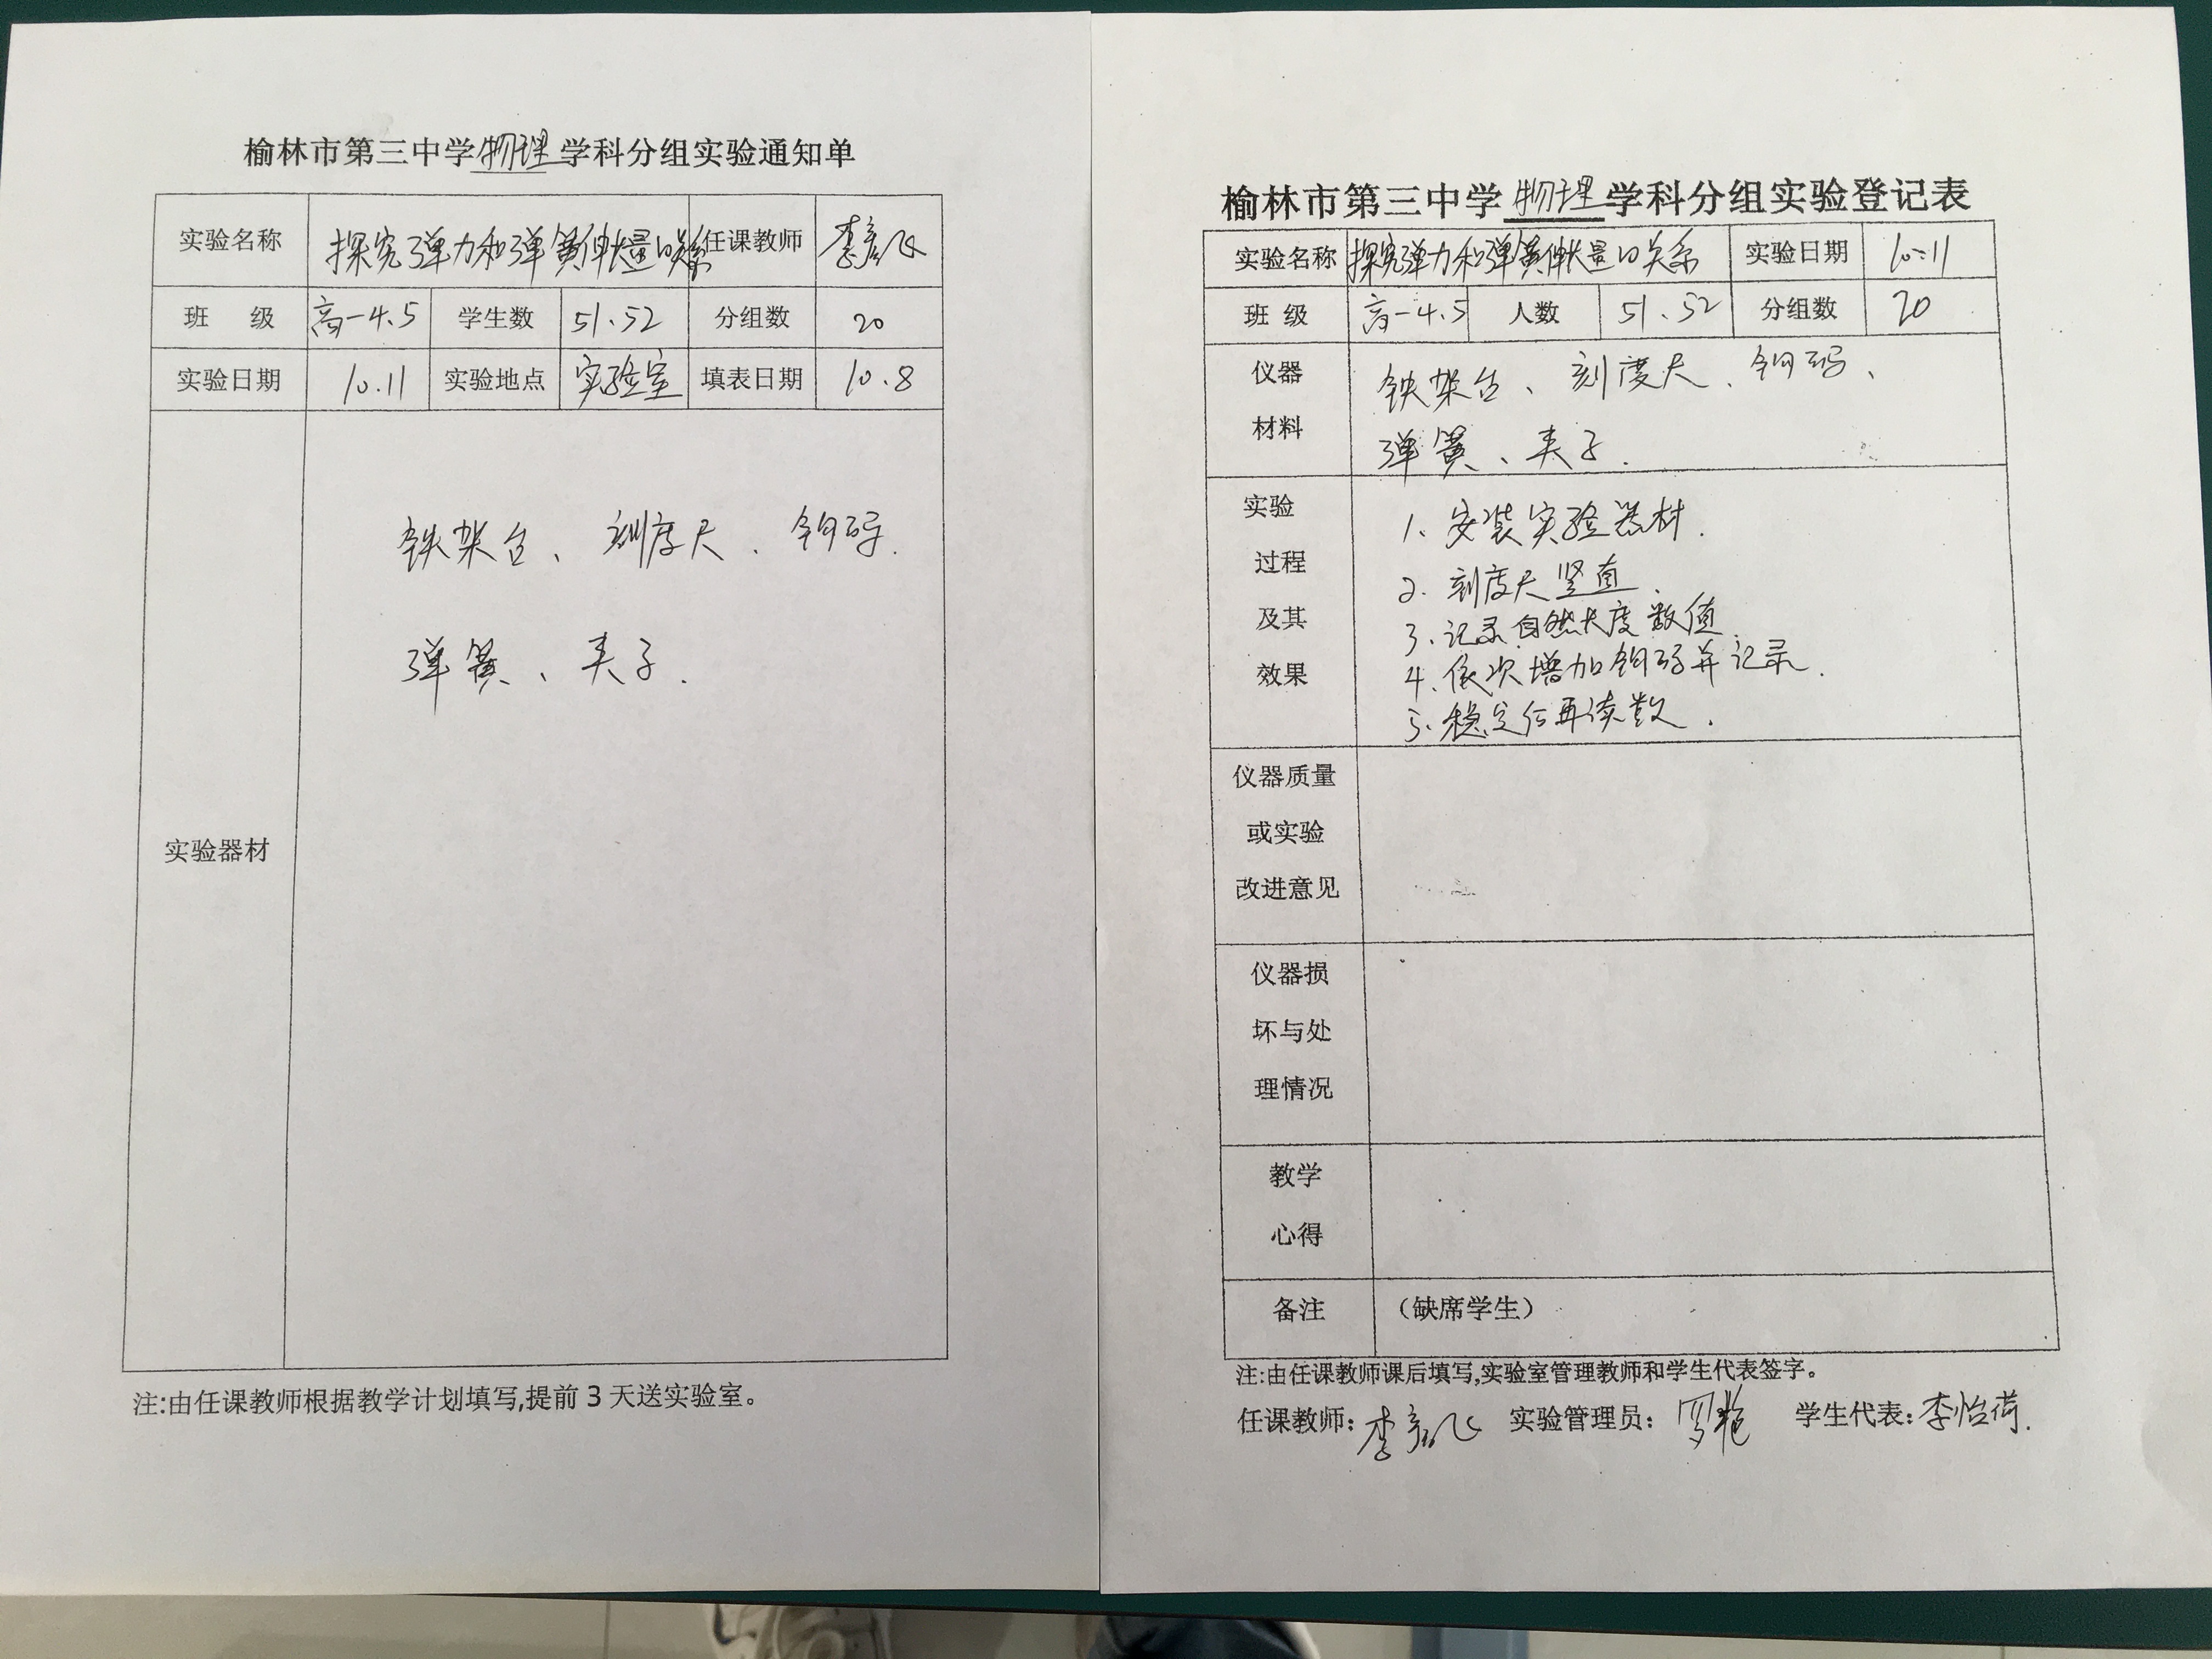 榆林市第三中学物理学科分组实验通知单
实验名称 探究弹力和弹簧伸长量的关系 任课教师 李彦飞
班 级 高一4.5 学生数 51.52 分组数 20
实验日期 10.11 实验地点 实验室 填表日期 10.8
实验器材
铁架台、刻度尺、钩码.
弹簧、夹子.
注:由任课教师根据教学计划填写,提前3天送实验室。
榆林市第三中学物理学科分组实验登记表
实验名称 探究弹力和弹簧伸长量的关系 实验日期 10.11
班 级 高一4.5 人数 51.52 分组数 20
仪器
材料
铁架台、刻度尺、钩码、
弹簧、夹子.
实验
过程
及其
效果
1.安装实验器材.
2.刻度尺竖直.
3.记录自然长度数值.
4.依次增加钩码并记录.
5.稳定后再读数.
仪器质量
或实验
改进意见
仪器损
坏与处
理情况
教学
心得
备注 (缺席学生)
注:由任课教师课后填写,实验室管理教师和学生代表签字。
任课教师: 李彦飞 实验管理员: 罗艳 学生代表: 李怡荷.